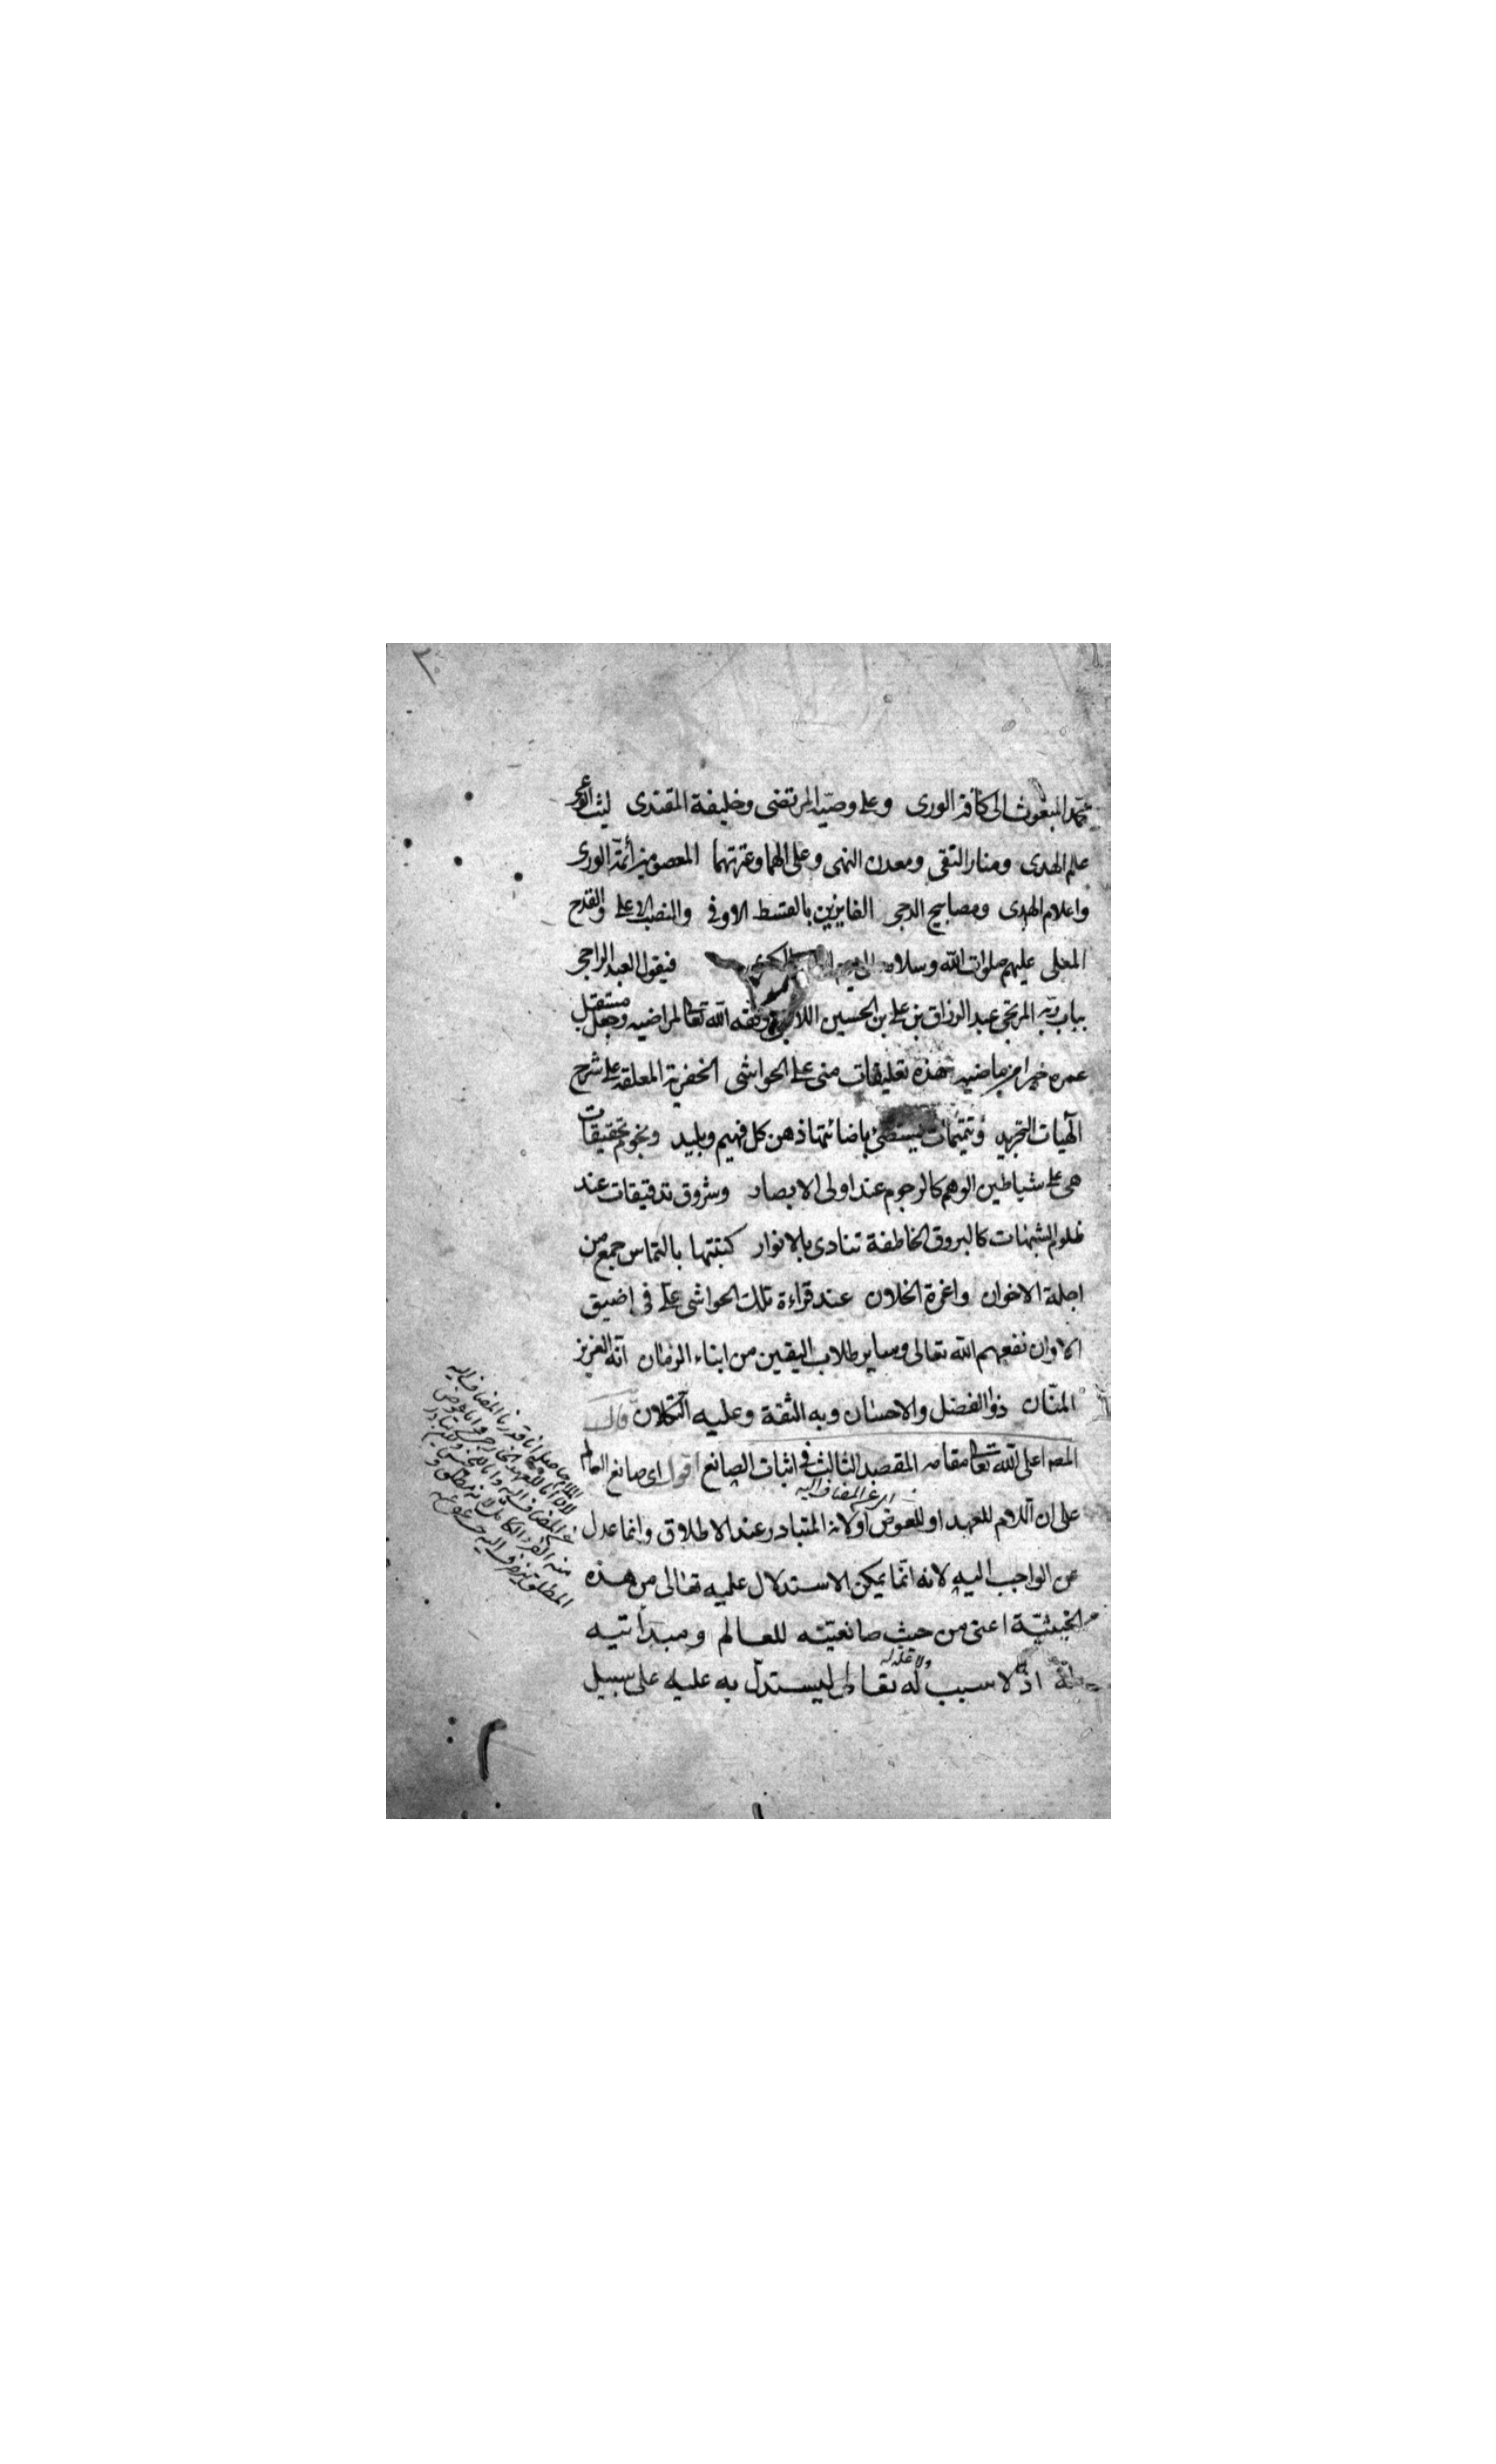 محمد المبعوث الى كافة الورى وعلى وصيه المرتضى وخليفة المقتدى ليث الوغى
علم الهدى ومنار التقى ومعدن النهى وعلى الهما وعترتهما المعصومين أئمة الورى
واعلام الهدى ومصابيح الدجى الفايزين بالقسط الاوفى والنصب الاعلى والقدح
المعلى عليهم صلوات الله وسلامه الى يوم فيقول العبد الراجى
بباب ربه المرتجى عبد الرزاق بن على بن الحسين اللاهجى وفقه الله تعالى لمراضيه وجعل مستقبل
عمره خيرا من ماضيه هذه تعليقات منى على الحواشى الخفرية المعلقة على شرح
آلهيات التجريد وتتميمات يستضئ باضائتها ذهن كل فهيم وبليد ونجوم تحقيقات
هى على شياطين الوهم كالرجوم عند اولى الابصار وشروق تدقيقات عند
ظلوم الشبهات كالبروق الخاطفة تنادى بالانوار كتبتها بالتماس جمع من
اجلة الاخوان واعزة الخلان عند قراءة تلك الحواشى على فى اضيق
الاوان نفعهم الله تعالى وساير طلاب اليقين من ابناء الزمان انه العزيز
المنّان ذو الفضل والاحسان وبه الثقة وعليه التكلان قال
المص اعلى الله تعالى مقامه المقصد الثالث فى اثبات الصانع اقول اى صانع العالم
على ان اللام للعهد او للعوض اولانه المتبادر عند الاطلاق وانما عدل
اى عن المضاف اليه
عن الواجب اليه لانه انما يمكن الاستدلال عليه تعالى من هذه
الحيثيّة اعنى من حيث صانعيّته للعالم ومبدأتيه
له اذ لا سبب له تعالى ليستدلّ به عليه على سبيل
ولا علة له